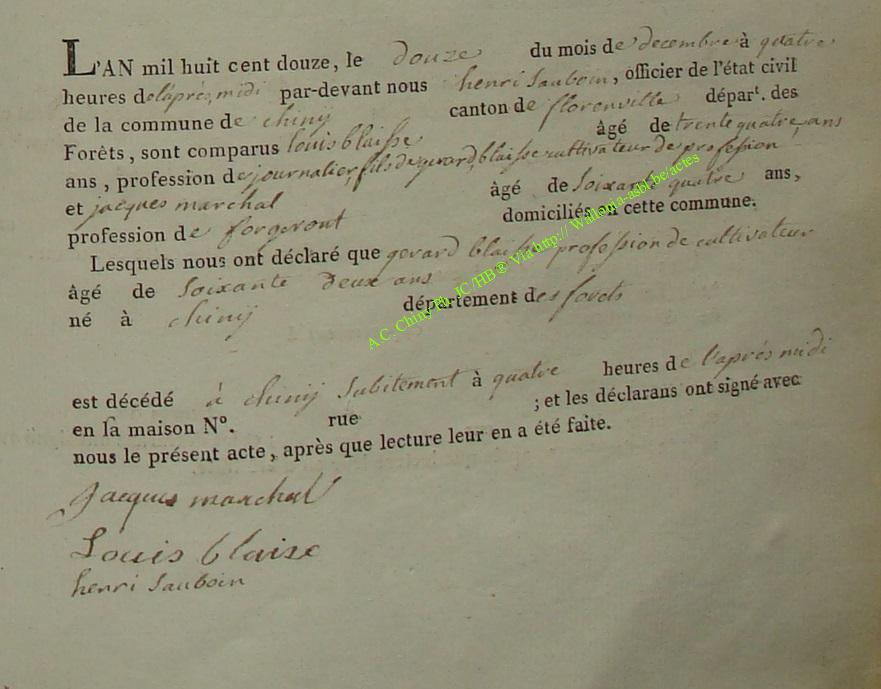 L'AN mil huit cent douze, le douze du mois de decembre à quatre
heures de l'après midi par-devant nous henri Sauboin, officier de l'état civil
de la commune de chinÿ canton de florenville départ. des
Forêts, sont comparus louis blaisse âgé de trente quatre ans
ans, profession de journalier, fils de gerard blaisse cultivateur de profession
et jacques marchal âgé de Soixante quatre ans,
profession de forgeront domiciliés en cette commune.
Lesquels nous ont déclaré que gerard blaisse profession de cultivateur
âgé de Soixante deux ans
né à chinÿ département des forets
est décédé à chinÿ Subitement à quatre heures de l'après midi
en la maison N°. rue ; et les déclarans ont signé avec
nous le présent acte, après que lecture leur en a été faite.
Jacques marchal
Louis blaise
henri Sauboin
A.C. Chiny Ph. JC/HB ® Via http:// Wallonia-asbl.be/actes